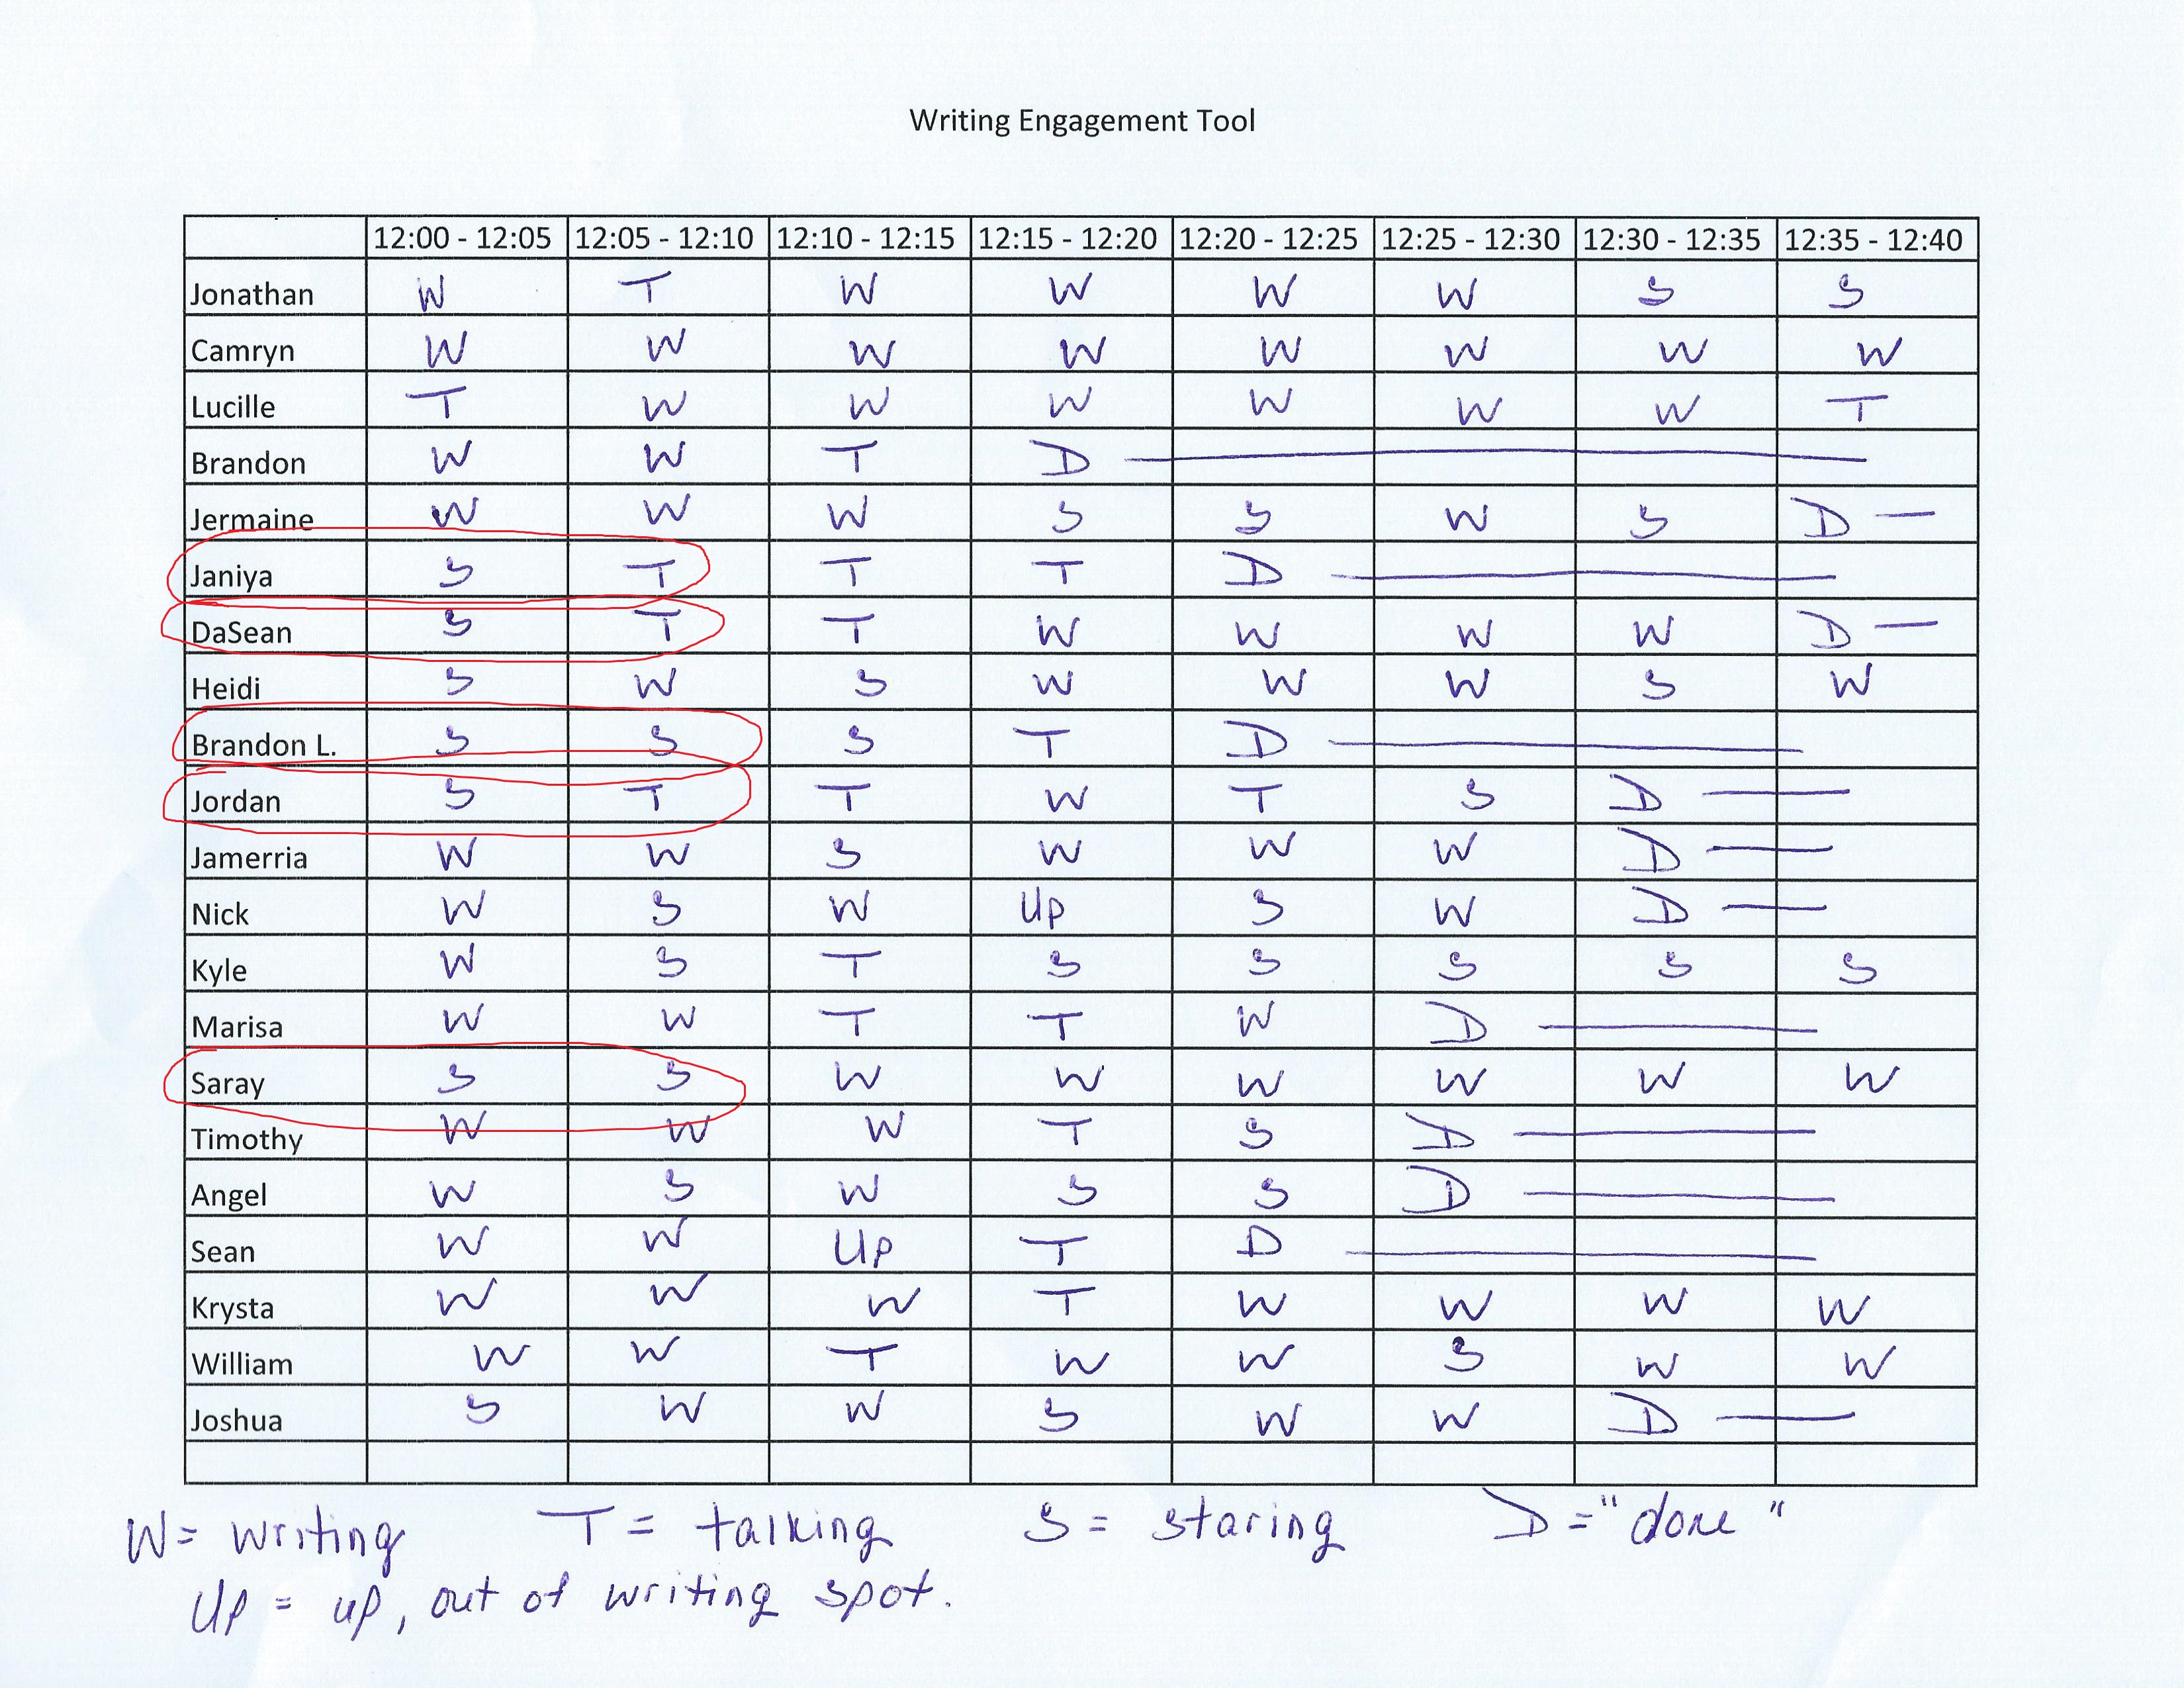 Writing Engagement Tool
12:00 - 12:05 12:05 - 12:10 12:10 - 12:15 12:15 - 12:20 12:20 - 12:25 12:25 - 12:30 12:30 - 12:35 12:35 - 12:40
Jonathan W T W W W W S S
Camryn W W W W W W W W
Lucille T W W W W W W T
Brandon W W T D
Jermaine W W W S S W S D
Janiya S T T T D
DaSean S T T W W W W D
Heidi S W S W W W S W
Brandon L. S S S T D
Jordan S T T W T S D
Jamerria W W S W W W D
Nick W S W Up S W D
Kyle W S T S S S S S
Marisa W W T T W D
Saray S S W W W W W W
Timothy W W W T S D
Angel W S W S S D
Sean W W Up T D
Krysta W W W T W W W W
William W W T W W S W W
Joshua S W W S W W D
W = writing T = talking S = staring D = "done"
Up = up, out of writing spot.